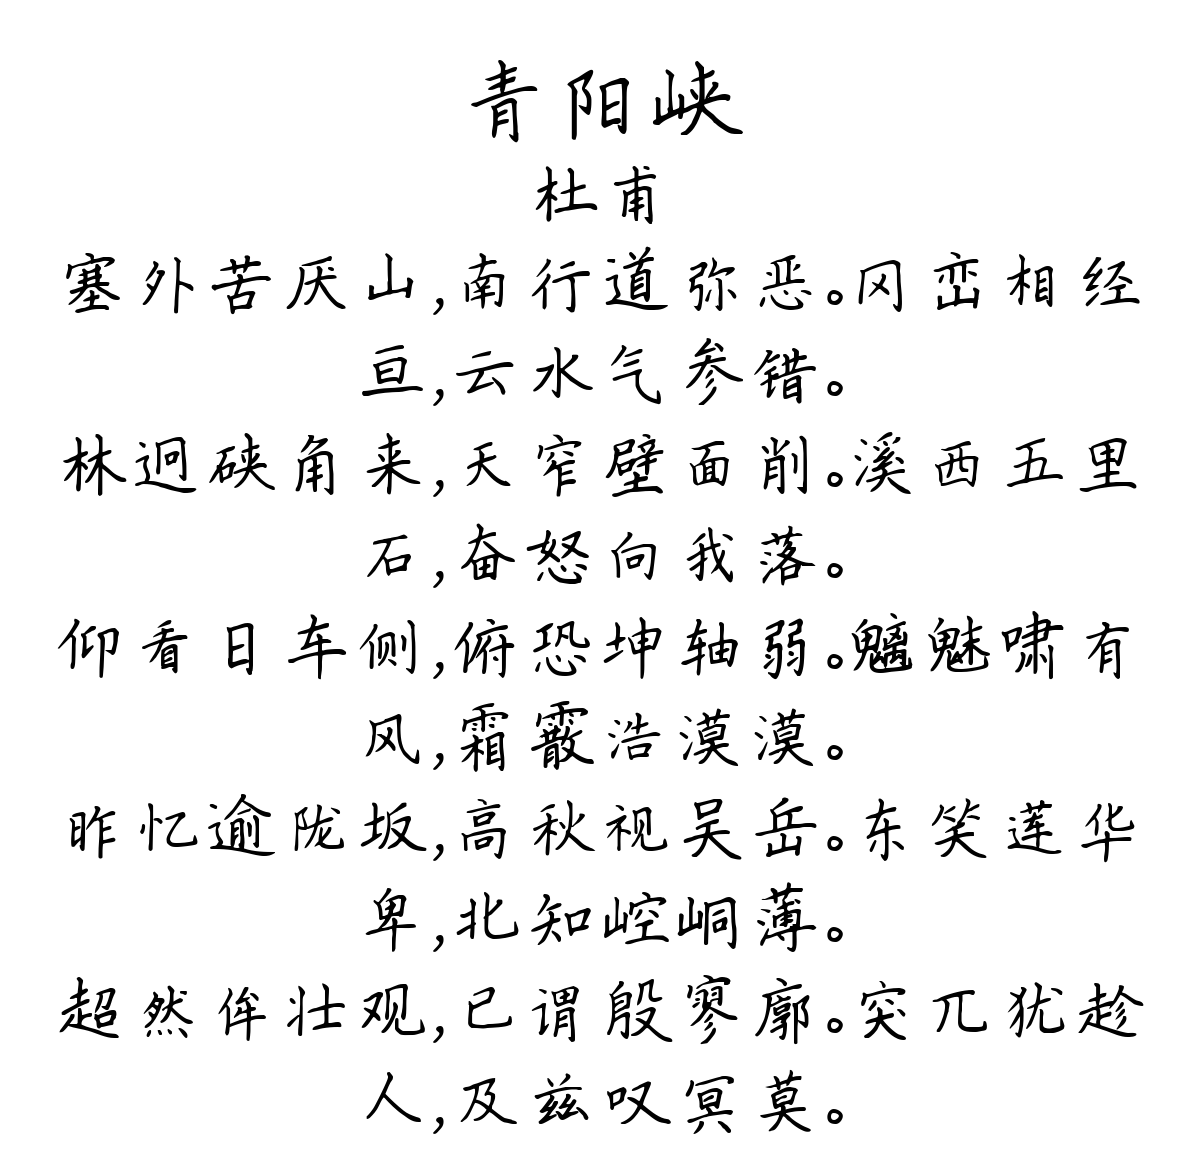 青阳峡
杜甫
塞外苦厌山,南行道弥恶。冈峦相经
亘,云水气参错。
林迥硖角来,天窄壁面削。溪西五里
石,奋怒向我落。
仰看日车侧,俯恐坤轴弱。魑魅啸有
风,霜霰浩漠漠。
昨忆逾陇坂,高秋视吴岳。东笑莲华
卑,北知崆峒薄。
超然侔壮观,已谓殷寥廓。突兀犹趁
人,及兹叹冥莫。